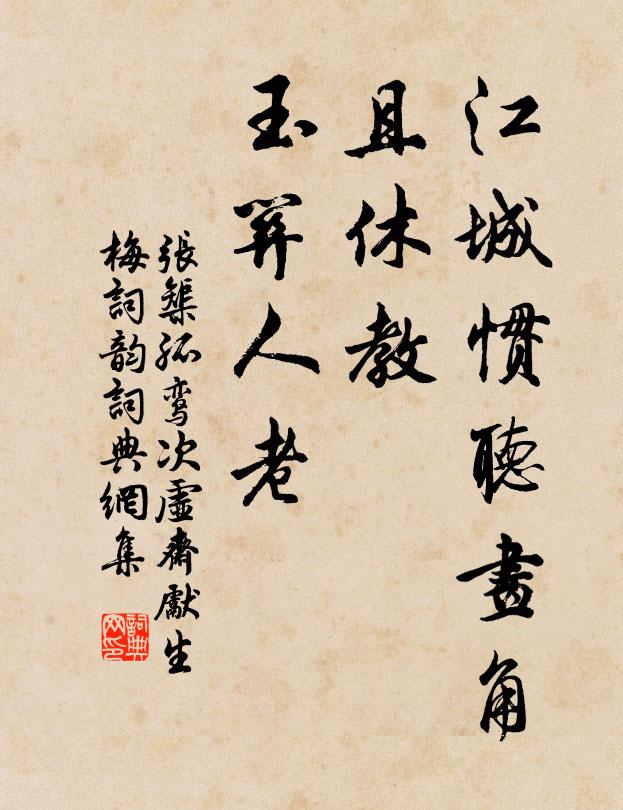 江城慣聽畫角
且休教
玉關人老
張榘孤鸾次虛齋獻生
梅詞韵詞典網集
詞典
网印